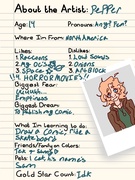 About the Artist: Pepper
Age: 14 Pronouns: Any! Fem!
Where I'm From: North America
Likes: Dislikes:
1. Raccoons 1. Loud Sounds
2. My OCs 2. Onions
3. Space 3. Art Block
4. HORROR MOVIES
Biggest Fear:
Emptiness
Biggest Dream:
Publishing Comic
What I'm Learning to do:
Draw a Comic, Ride a
Skateboard
Friends/Family or Colors:
Pets: 1 cat, his name's
Sam
Gold Star Count: Idk